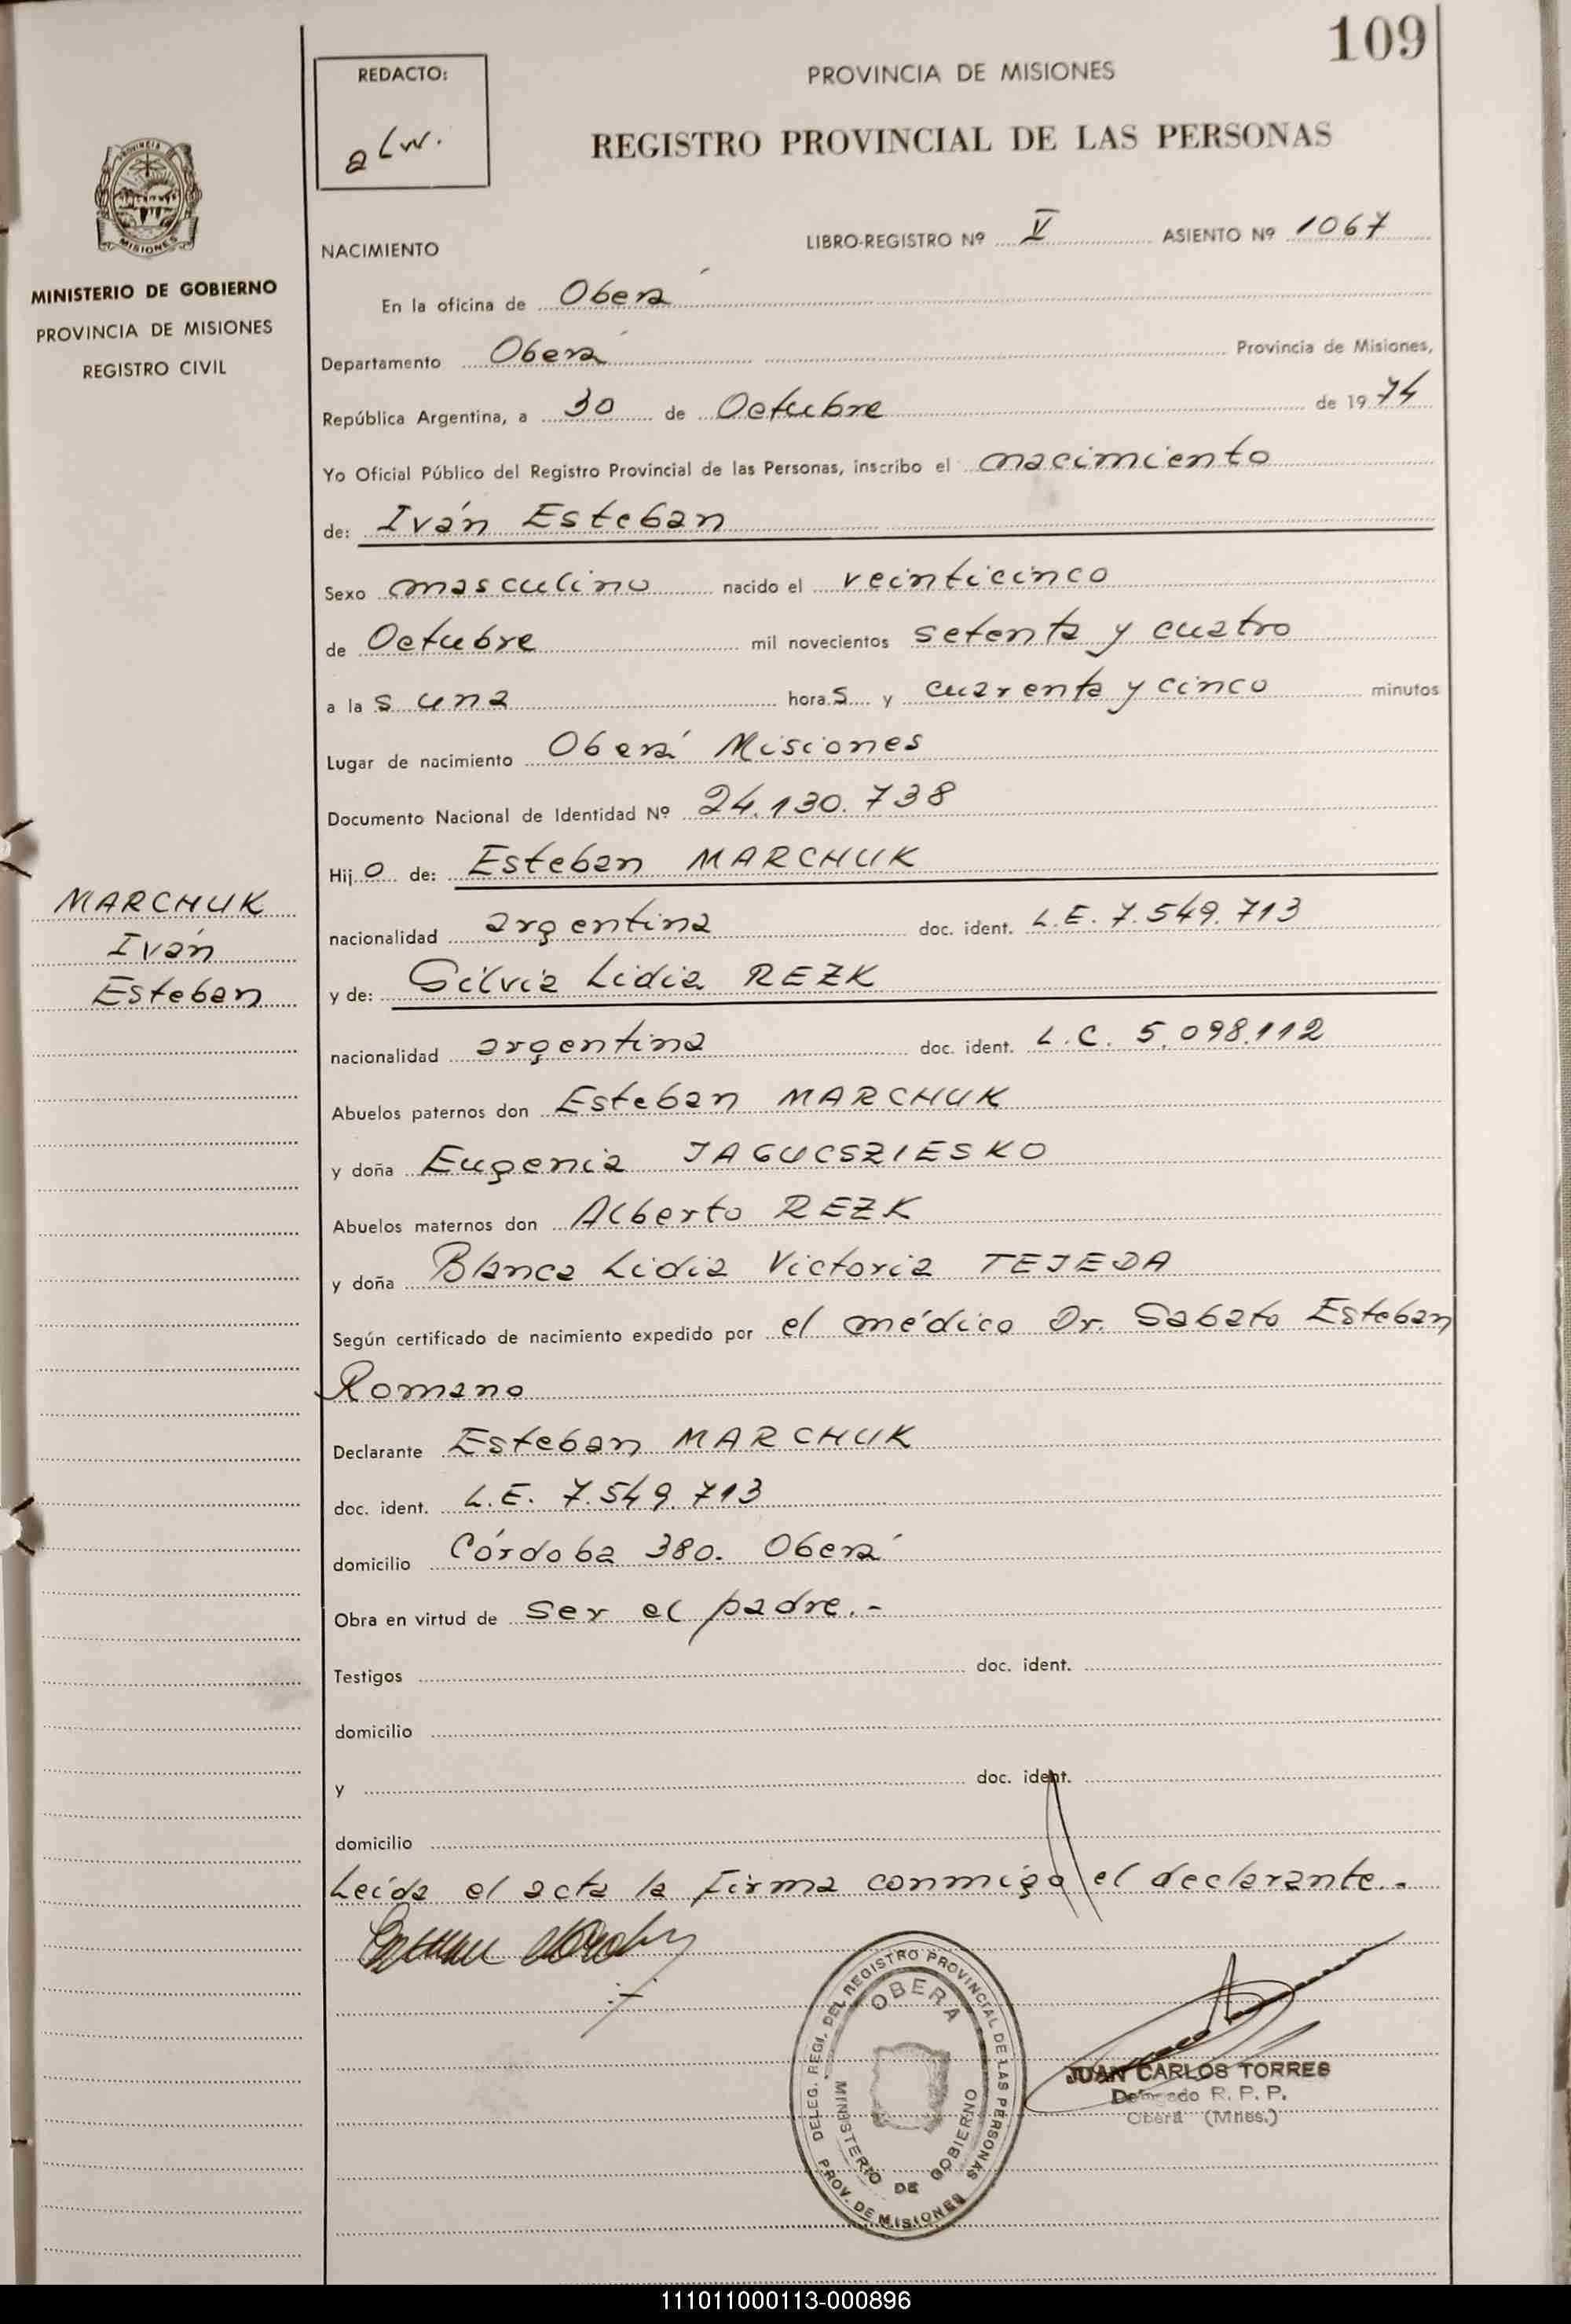 109
REDACTO:
PROVINCIA DE MISIONES
REGISTRO PROVINCIAL DE LAS PERSONAS
PROVINCIA DE
MISIONES
MINISTERIO DE GOBIERNO
PROVINCIA DE MISIONES
REGISTRO CIVIL
NACIMIENTO LIBRO-REGISTRO Nº V ASIENTO Nº 1067
En la oficina de Oberá
Departamento Oberá Provincia de Misiones,
República Argentina, a 30 de Octubre de 1974
Yo Oficial Público del Registro Provincial de las Personas, inscribo el nacimiento
de: Iván Esteban
Sexo masculino nacido el veinticinco
de Octubre mil novecientos setenta y cuatro
a las una horas y cuarenta y cinco minutos
Lugar de nacimiento Oberá Misiones
Documento Nacional de Identidad Nº 24.130.738
Hijo de: Esteban MARCHUK
MARCHUK
Iván
Esteban
nacionalidad argentina doc. ident. L.E. 7.549.713
y de: Silvia Lidia REZK
nacionalidad argentina doc. ident. L.C. 5.098.112
Abuelos paternos don Esteban MARCHUK
y doña Eugenia JAGUCSZIESKO
Abuelos maternos don Alberto REZK
y doña Blanca Lidia Victoria TEJEDA
Según certificado de nacimiento expedido por el médico Dr. Sabato Esteban
Romano
Declarante Esteban MARCHUK
doc. ident. L.E. 7.549.713
domicilio Córdoba 380. Oberá
Obra en virtud de ser el padre.-
Testigos doc. ident.
domicilio
y doc. ident.
domicilio
Leída el acta la firma conmigo el declarante.-
DELEG. REGI. DEL REGISTRO PROVINCIAL DE LAS PERSONAS
OBERA
MINISTERIO DE GOBIERNO
PROV. DE MISIONES
JUAN CARLOS TORRES
Delegado R. P. P.
Oberá (Mnes.)
111011000113-000896